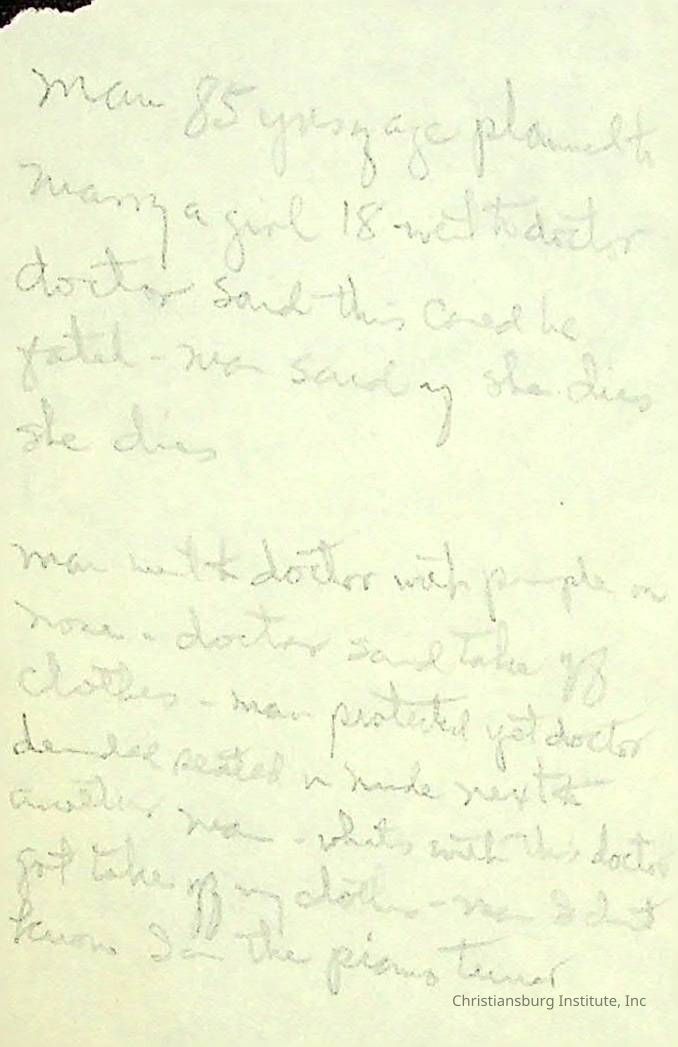 Man 85 yrs of age planned to
marry a girl 18 - went to doctor
doctor said this could be
fatal - man said if she dies
she dies
Man went to doctor with pimple on
nose - doctor said take off
clothes - man protested yet doctor
seated in nude next to
another man - whats with this doctor
got take off my clothes - man I dont
know I am the piano tuner
Christiansburg Institute, Inc